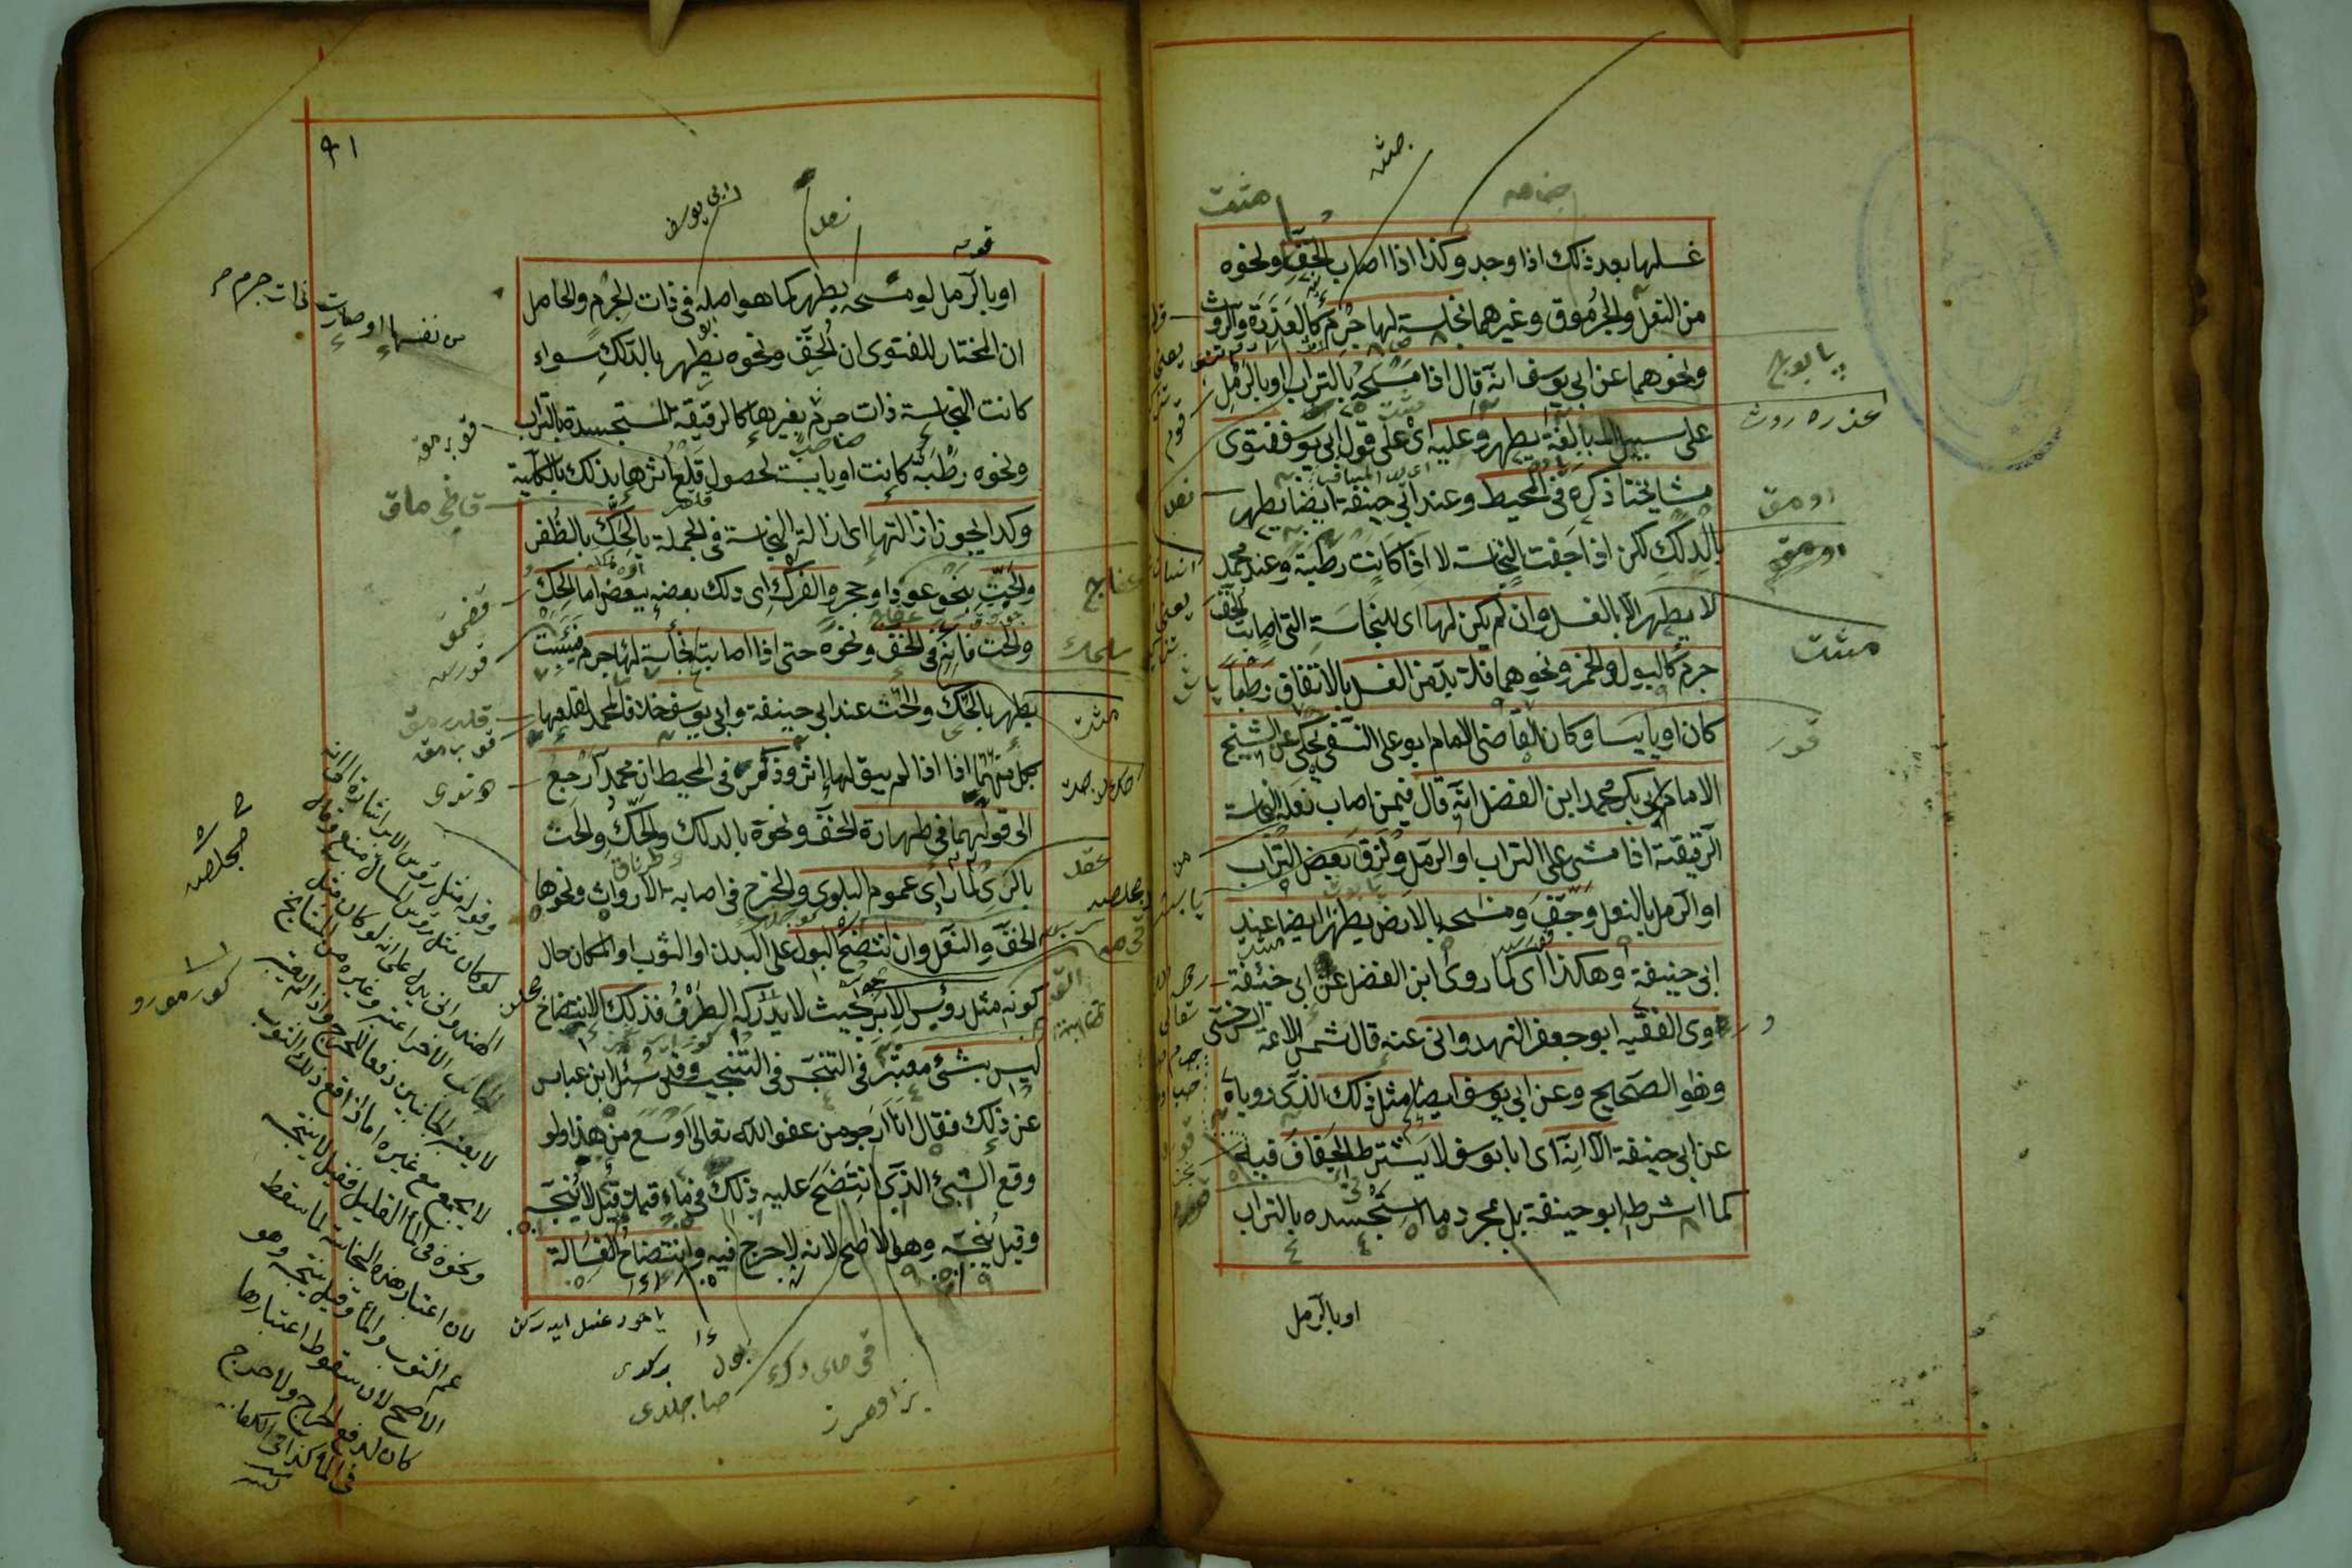 غسلها بعد ذلك اذا وجد وكذا اذا اصاب الخف ونحوه
من النعل والجرموق وغيرهما نجاسة لها جرم كالعذرة والروث
ونحوهما عن ابى يوسف انه قال اذا مسحه بالتراب او بالرمل
على سبيل المبالغة يطهر وعليه اى على قول ابى يوسف فتوى
مشايخنا ذكره فى المحيط وعند ابى حنيفة ايضا يطهر
بالدلك لكن اذا جفت النجاسة لا اذا كانت رطبة وعند محمد
لا يطهر الا بالغسل وان لم يكن لها اى للنجاسة التى اصابت الخف
جرم كالبول والخمر ونحوهما فلا بد من الغسل بالاتفاق رطبا
كان او يابسا وكان القاضى الامام ابو على النسفى يحكى عن الشيخ
الامام ابى بكر محمد ابن الفضل انه قال فيمن اصاب نعله النجاسة
الرقيقة اذا مشى على التراب او الرمل ولزق بعض التراب
او الرمل بالنعل وجف ومسحه بالارض يطهر ايضا عند
ابى حنيفة وهكذا اى كما روى ابن الفضل عن ابى حنيفة
روى الفقيه ابو جعفر الهندوانى عنه قال شمس الائمة السرخسى
وهو الصحيح وعن ابى يوسف ايضا مثل ذلك الذى روياه
عن ابى حنيفة الا انه اى ابا يوسف لا يشترط الجفاف فيه
كما اشرطه ابو حنيفة بل مجرد ما استجسده بالتراب
او بالرمل
پابوج
عذره روث
اومق
مثت
قور
٩١
ابى يوسف
نعل
او بالرمل لو مسحه يطهر كما هو اصله فى ذات الجرم والحاصل
ان المختار للفتوى ان الخف ونحوه يطهر بالدلك سواء
كانت النجاسة ذات جرم بغيرها كالرقيقة المستجسدة بالتراب
ونحوه رطبة كانت او يابسة لحصول قلع اثرها بذلك بالكلية
وكذا يجوز ازالتها اى ازالة النجاسة فى الجملة بالحك بالظفر
والحت بنحو عود او حجر والفرك اى دلك بعضه ببعض اما الحك
والحت فانه فى الخف ونحوه حتى اذا اصابته نجاسة لها جرم فيبست
يطهر بالحك والحت عند ابى حنيفة وابى يوسف خلافا لمحمد لقلعها
بكل منهما اذا لم يبق لها اثر وذكر فى المحيط ان محمدا رجع
الى قولهما فى طهارة الخف ونحوه بالدلك والحك والحت
بالرى لما راى عموم البلوى والحرج فى اصابة الارواث ونحوها
الخف والنعل وان انتضح البول على البدن او الثوب او المكان حال
كونه مثل رؤس الابر بحيث لا يدركه الطرف فذلك الانتضاخ
ليس بشئ معتبر فى التنجس فى التنجيس وقد سئل ابن عباس
عن ذلك فقال انا ارجو من عفو الله تعالى اوسع من هذا ولو
وقع الشئ الذى انتضح عليه ذلك فى ماء قليل قيل لا ينجسه
وقيل ينجسه وهو الاصح لانه لا حرج فيه وانتضاخ الغسالة
من نفسها او صارت ذات جرم
قوبرمق
قازى ماق
قلدرمق
قوبرمق
وقوله مثل رؤس الابر اشارة الى انه
لو كان مثل رؤس المسال منع وقال
الهندوانى يدل على انه لو كان مثل
الجانب الآخر اعتبر وغيره من المشايخ
لا يعتبر الجانبين دفعا للحرج واذا لم يعتبر
لا يجمع مع غيره اما اذا وقع ذلك الثوب
ونحوه فى الماء القليل فقيل لا ينجسه
لان اعتبار هذه النجاسة لما سقط
عم الثوب والماء وقيل ينجسه وهو
الاصح لان سقوط اعتبارها
كان لدفع الحرج ولا حرج
فى الماء كذا فى الكفاية
ياخود غسل ايدركن
بول